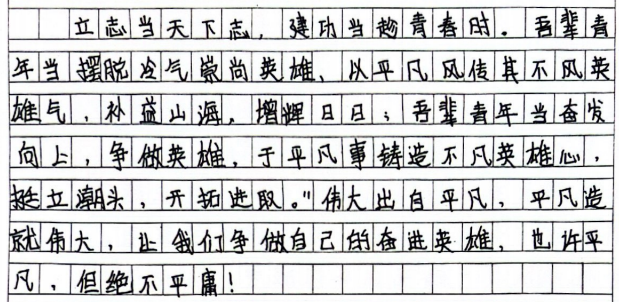 立志当天下志，建功当趁青春时。吾辈青
年当摆脱冷气崇尚英雄、以平凡风传其不凤英
雄气，补益山海，增辉日日；吾辈青年当奋发
向上，争做英雄，于平凡事铸造不凡英雄心，
挺立潮头，开拓进取。"伟大出自平凡，平凡造
就伟大，让我们争做自己的奋进英雄，也许平
凡，但绝不平庸！